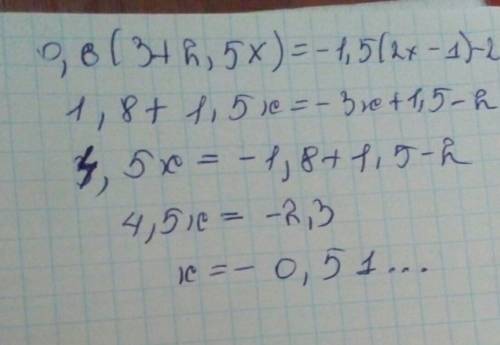 0,6(3+2,5x)=-1,5(2x-1)-2
1,8+1,5x=-3x+1,5-2
4,5x=-1,8+1,5-2
4,5x=-2,3
x=-0,51...